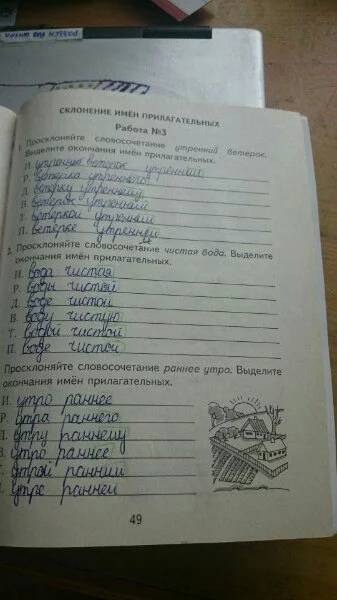 СКЛОНЕНИЕ ИМЁН ПРИЛАГАТЕЛЬНЫХ
Работа №3
1. Просклоняйте словосочетание утренний ветерок.
Выделите окончания имён прилагательных.
И. ветерок утренний
Р. ветерка утреннего
Д. ветерку утреннему
В. ветерок утренний
Т. ветерком утренним
П. ветерке утреннем
2. Просклоняйте словосочетание чистая вода. Выделите
окончания имён прилагательных.
И. вода чистая
Р. воды чистой
Д. воде чистой
В. воду чистую
Т. водой чистой
П. воде чистой
Просклоняйте словосочетание раннее утро. Выделите
окончания имён прилагательных.
И. утро раннее
Р. утра раннего
Д. утру раннему
В. утро раннее
Т. утрой ранним
П. утре раннем
49